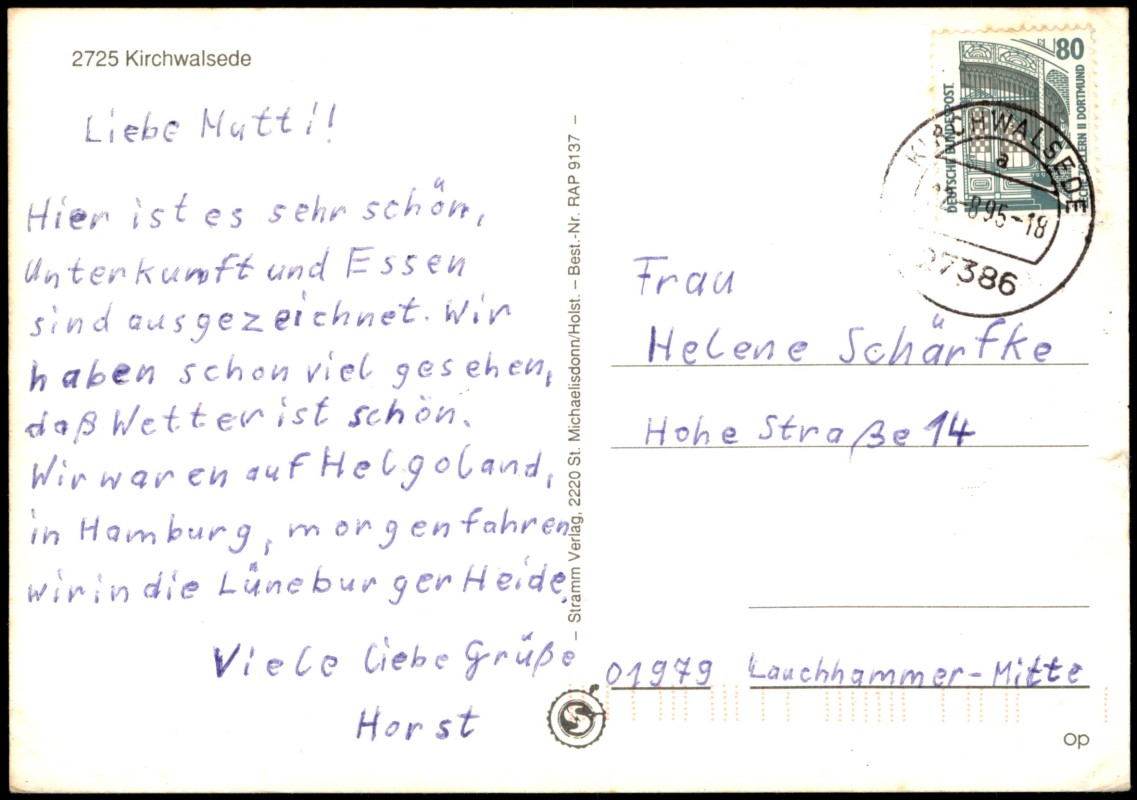 2725 Kirchwalsede
Liebe Mutti!
Hier ist es sehr schön,
Unterkunft und Essen
sind ausgezeichnet. Wir
haben schon viel gesehen,
daß Wetter ist schön.
Wir waren auf Helgoland,
in Hamburg, morgen fahren
wir in die Lüneburger Heide.
Viele liebe Grüße
Horst
– Stramm Verlag, 2220 St. Michaelisdonn/Holst. – Best.-Nr. RAP 9137 –
80
DEUTSCHE BUNDESPOST
II DORTMUND
KIRCHWALSEDE
a
8.95-18
27386
Frau
Helene Schärfke
Hohe Straße 14
01979 Lauchhammer-Mitte
op